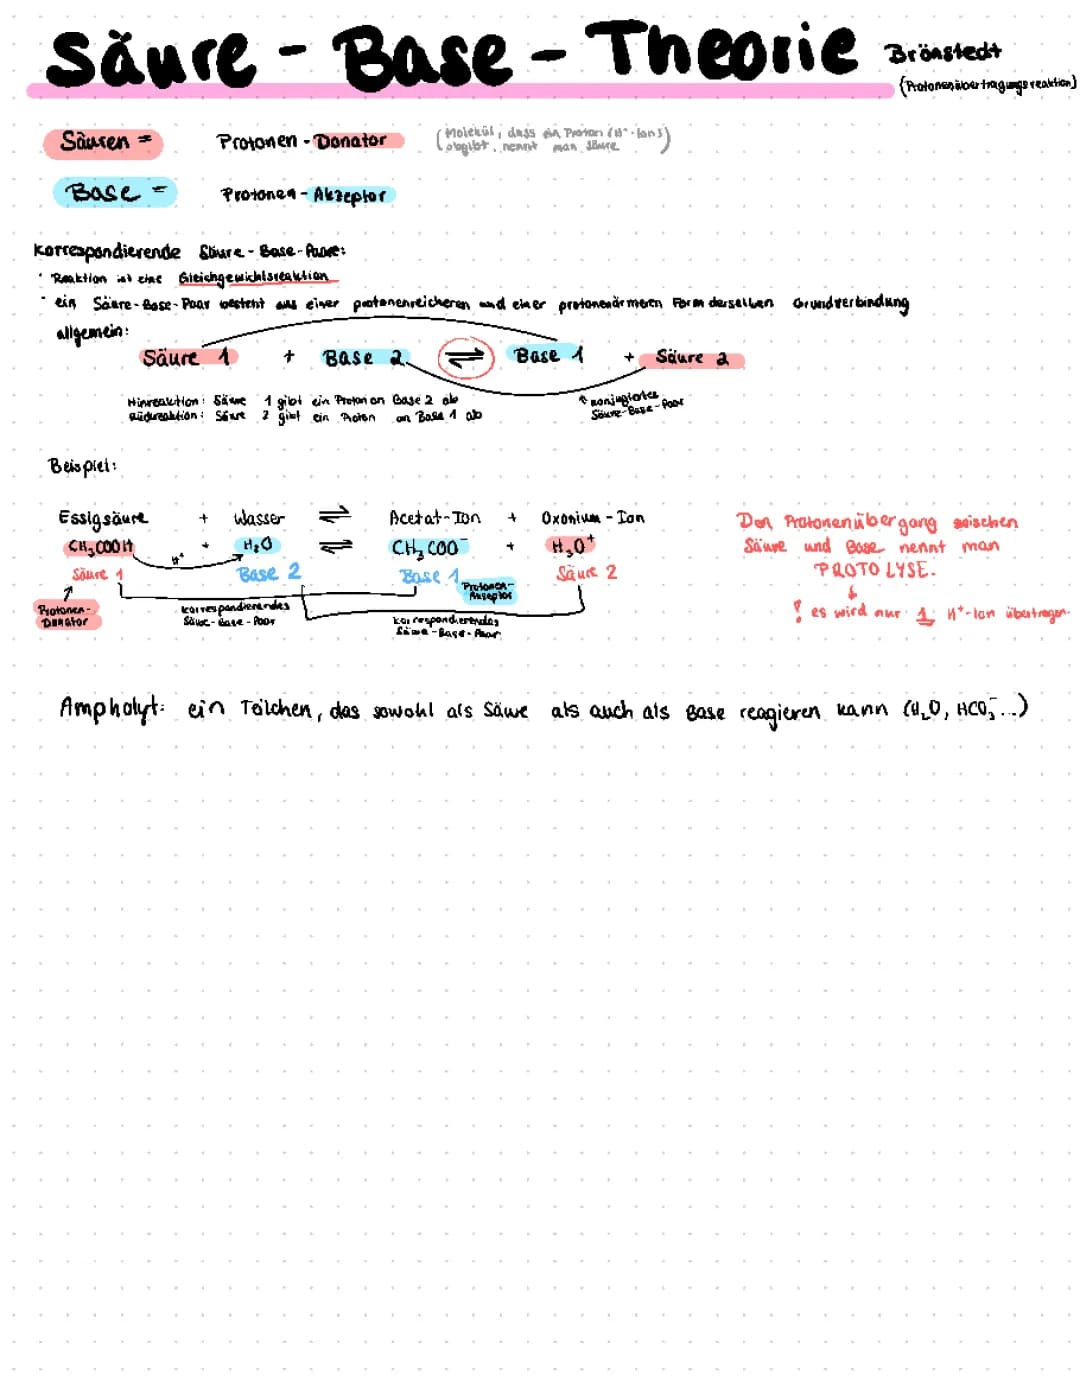 Säure - Base - Theorie Brönstedt
(Protonenübertragungsreaktion)
Säuren = Protonen - Donator (Molekül, dass ein Proton (H⁺-Ions) abgibt, nennt man Säure)
Base = Protonen - Akzeptor
Korrespondierende Säure - Base - Paare:
· Reaktion ist eine Gleichgewichtsreaktion
· ein Säure-Base-Paar besteht aus einer protonenreicheren und einer protonenärmeren Form derselben Grundverbindung
allgemein:
Säure 1 + Base 2 ⇌ Base 1 + Säure 2
Hinreaktion: Säure 1 gibt ein Proton an Base 2 ab
Rückreaktion: Säure 2 gibt ein Proton an Base 1 ab
konjugiertes
Säure-Base-Paar
Beispiel:
Essigsäure + Wasser ⇌ Acetat-Ion + Oxonium - Ion
CH₃COOH + H₂O ⇌ CH₃COO⁻ + H₃O⁺
H⁺
Säure 1 Base 2 Base 1 Säure 2
Protonen-
Akzeptor
Protonen-
Donator
korrespondierendes
Säure-Base-Paar
korrespondierendes
Säure-Base-Paar
Den Protonenübergang zwischen
Säure und Base nennt man
PROTOLYSE.
↓
! es wird nur 1 H⁺-Ion übertragen.
Ampholyt: ein Teilchen, das sowohl als Säure als auch als Base reagieren kann (H₂O, HCO₃⁻...)